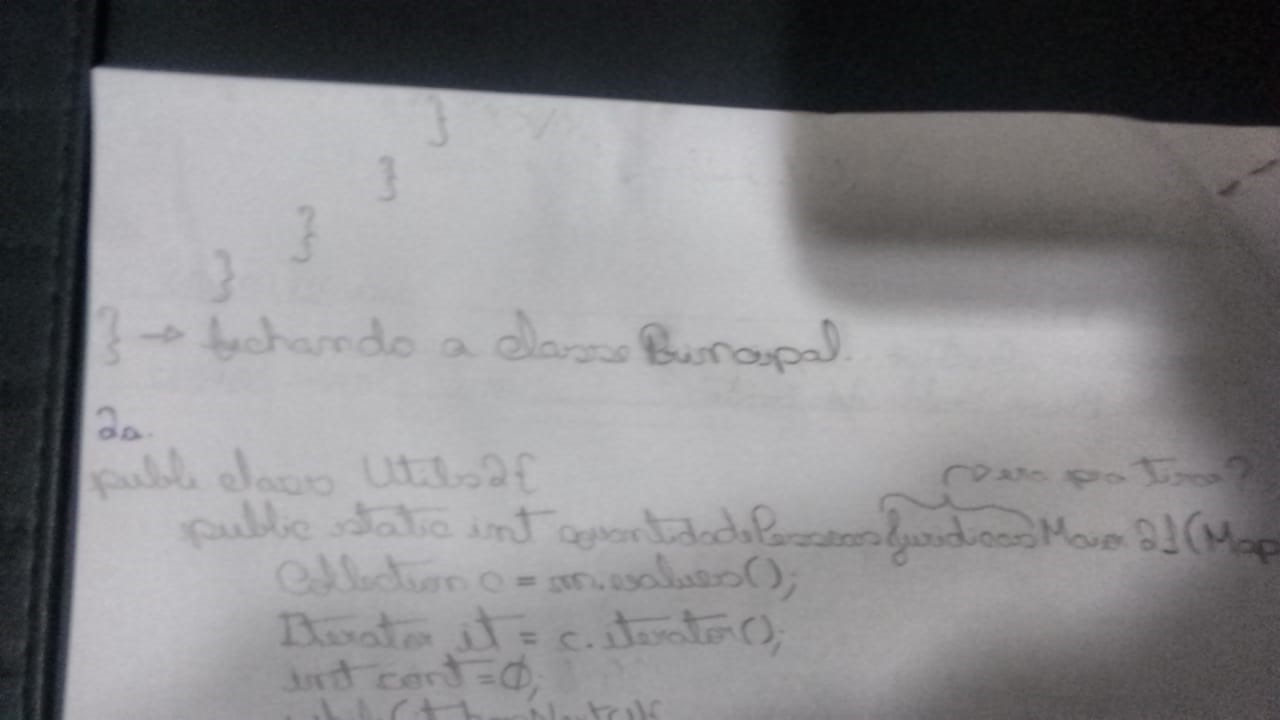 }
}
}
}
} → fechando a classe Principal.
2a.
public class Utils2{
public static int quantidadePessoasJuridicasMaior21(Map
Collection c = m.values();
Iterator it = c.iterator();
int cont=0;